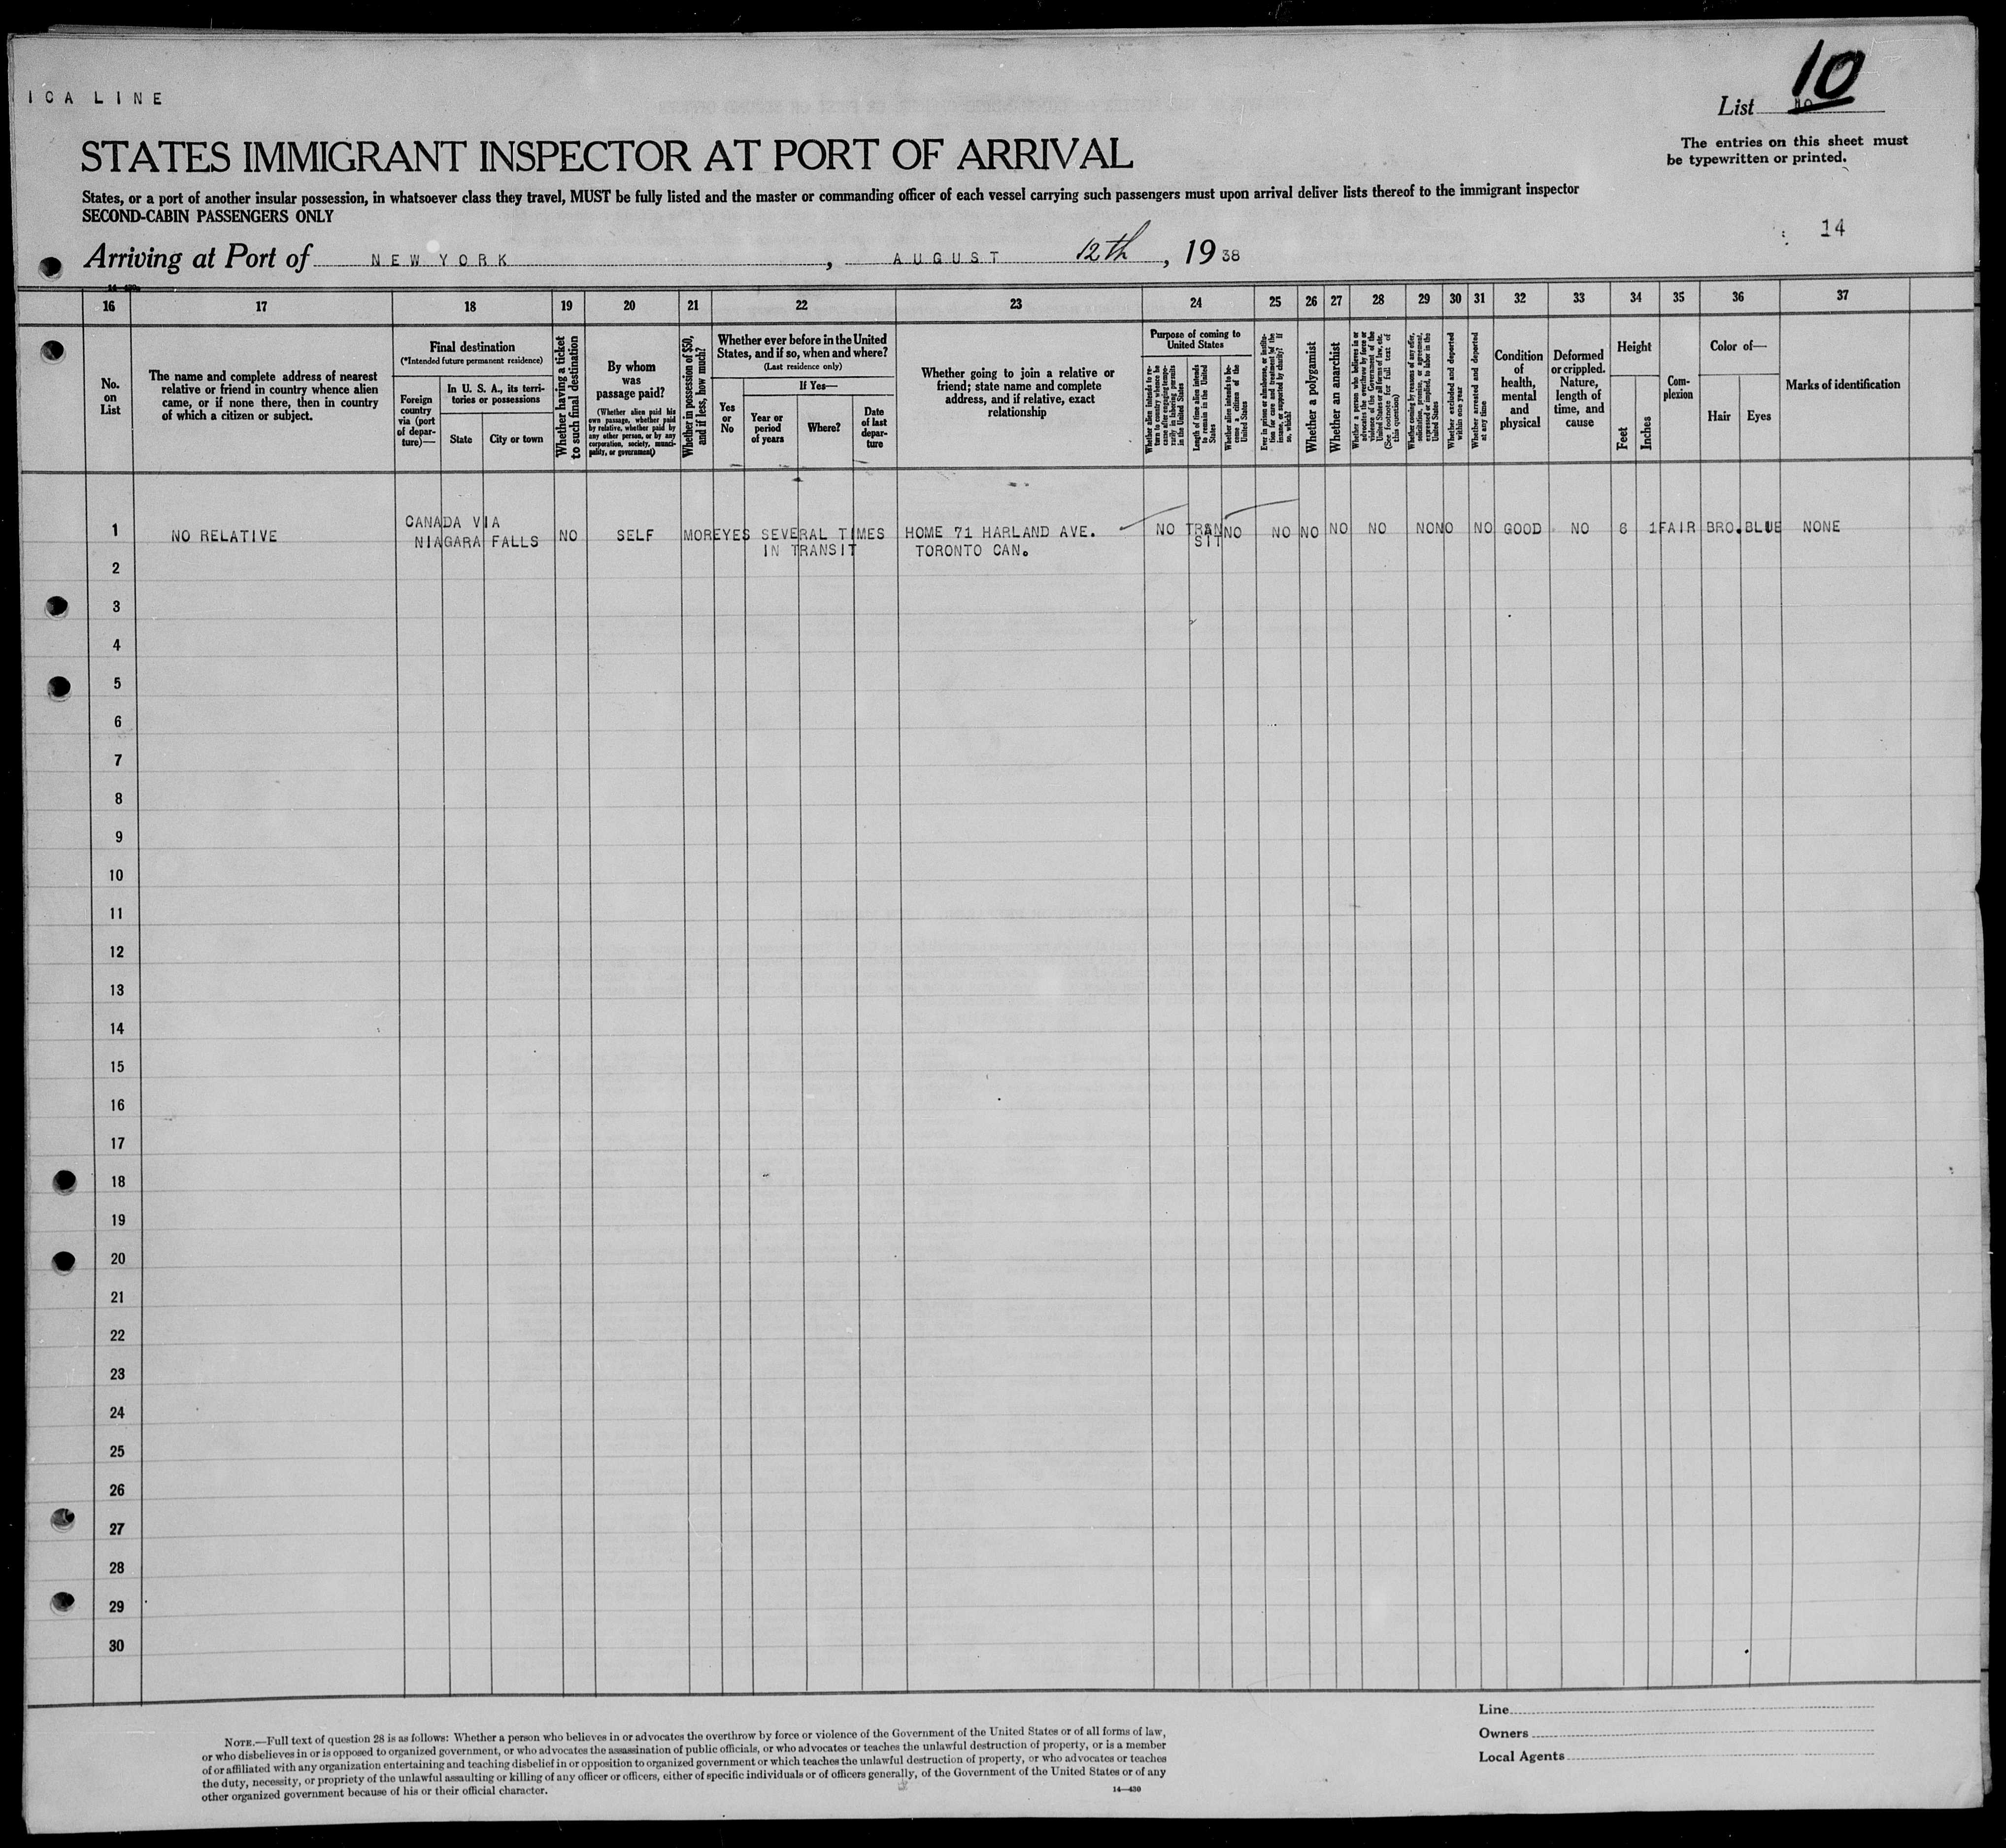 ICA LINE
List 10
The entries on this sheet must
be typewritten or printed.
STATES IMMIGRANT INSPECTOR AT PORT OF ARRIVAL
States, or a port of another insular possession, in whatsoever class they travel, MUST be fully listed and the master or commanding officer of each vessel carrying such passengers must upon arrival deliver lists thereof to the immigrant inspector
SECOND-CABIN PASSENGERS ONLY
14
Arriving at Port of NEW YORK, AUGUST 12th, 1938
16 17 18 19 20 21 22 23 24 25 26 27 28 29 30 31 32 33 34 35 36 37
No.
on
List
The name and complete address of nearest
relative or friend in country whence alien
came, or if none there, then in country
of which a citizen or subject.
Final destination
(*Intended future permanent residence)
Foreign
country
via (port
of depar-
ture)—
In U. S. A., its terri-
tories or possessions
State
City or town
Whether having a ticket
to such final destination
By whom
was
passage paid?
(Whether alien paid his
own passage, whether paid
by relative, whether paid by
any other person, or by any
corporation, society, munici-
pality, or government)
Whether in possession of $50,
and if less, how much?
Whether ever before in the United
States, and if so, when and where?
(Last residence only)
Yes
or
No
If Yes—
Year or
period
of years
Where?
Date
of last
depar-
ture
Whether going to join a relative or
friend; state name and complete
address, and if relative, exact
relationship
Purpose of coming to
United States
Whether alien intends to re-
turn to country whence he
came after engaging tempo-
rarily in laboring pursuits
in the United States
Length of time alien intends
to remain in the United
States
Whether alien intends to be-
come a citizen of the
United States
Ever in prison or almshouse, or institu-
tion for care and treatment of the
insane, or supported by charity? If
so, which?
Whether a polygamist
Whether an anarchist
Whether a person who believes in or
advocates the overthrow by force or
violence of the Government of the
United States or all forms of law, etc.
(See footnote for full text of
this question)
Whether coming by reason of any offer,
solicitation, promise, or agreement,
expressed or implied, to labor in the
United States
Whether excluded and deported
within one year
Whether arrested and deported
at any time
Condition
of
health,
mental
and
physical
Deformed
or crippled.
Nature,
length of
time, and
cause
Height
Feet
Inches
Com-
plexion
Color of—
Hair
Eyes
Marks of identification
1 NO RELATIVE CANADA VIA NIAGARA FALLS NO SELF MORE YES SEVERAL TIMES HOME 71 HARLAND AVE. NO TRAN NO NO NO NO NO NO NO NO GOOD NO 6 1 FAIR BRO. BLUE NONE
IN TRANSIT TORONTO CAN. SIT
2
3
4
5
6
7
8
9
10
11
12
13
14
15
16
17
18
19
20
21
22
23
24
25
26
27
28
29
30
NOTE.—Full text of question 28 is as follows: Whether a person who believes in or advocates the overthrow by force or violence of the Government of the United States or of all forms of law,
or who disbelieves in or is opposed to organized government, or who advocates the assassination of public officials, or who advocates or teaches the unlawful destruction of property, or is a member
of or affiliated with any organization entertaining and teaching disbelief in or opposition to organized government or which teaches the unlawful destruction of property, or who advocates or teaches
the duty, necessity, or propriety of the unlawful assaulting or killing of any officer or officers, either of specific individuals or of officers generally, of the Government of the United States or of any
other organized government because of his or their official character.
14—430
Line
Owners
Local Agents